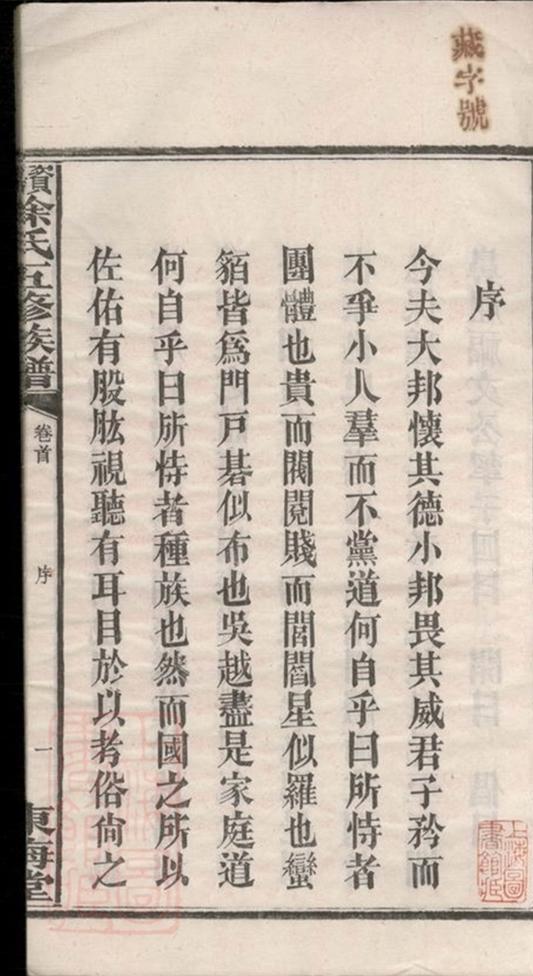 藏字號
序
今夫大邦懷其德小邦畏其威君子矜而
不爭小人羣而不黨道何自乎曰所恃者
團體也貴而閥閱賤而閭閻星似羅也蠻
貊皆爲門戸碁似布也吳越盡是家庭道
何自乎曰所恃者種族也然而國之所以
佐佑有股肱視聽有耳目於以考俗尙之
資徐氏五修族譜
卷首
序
一
東海堂
上海圖書館藏